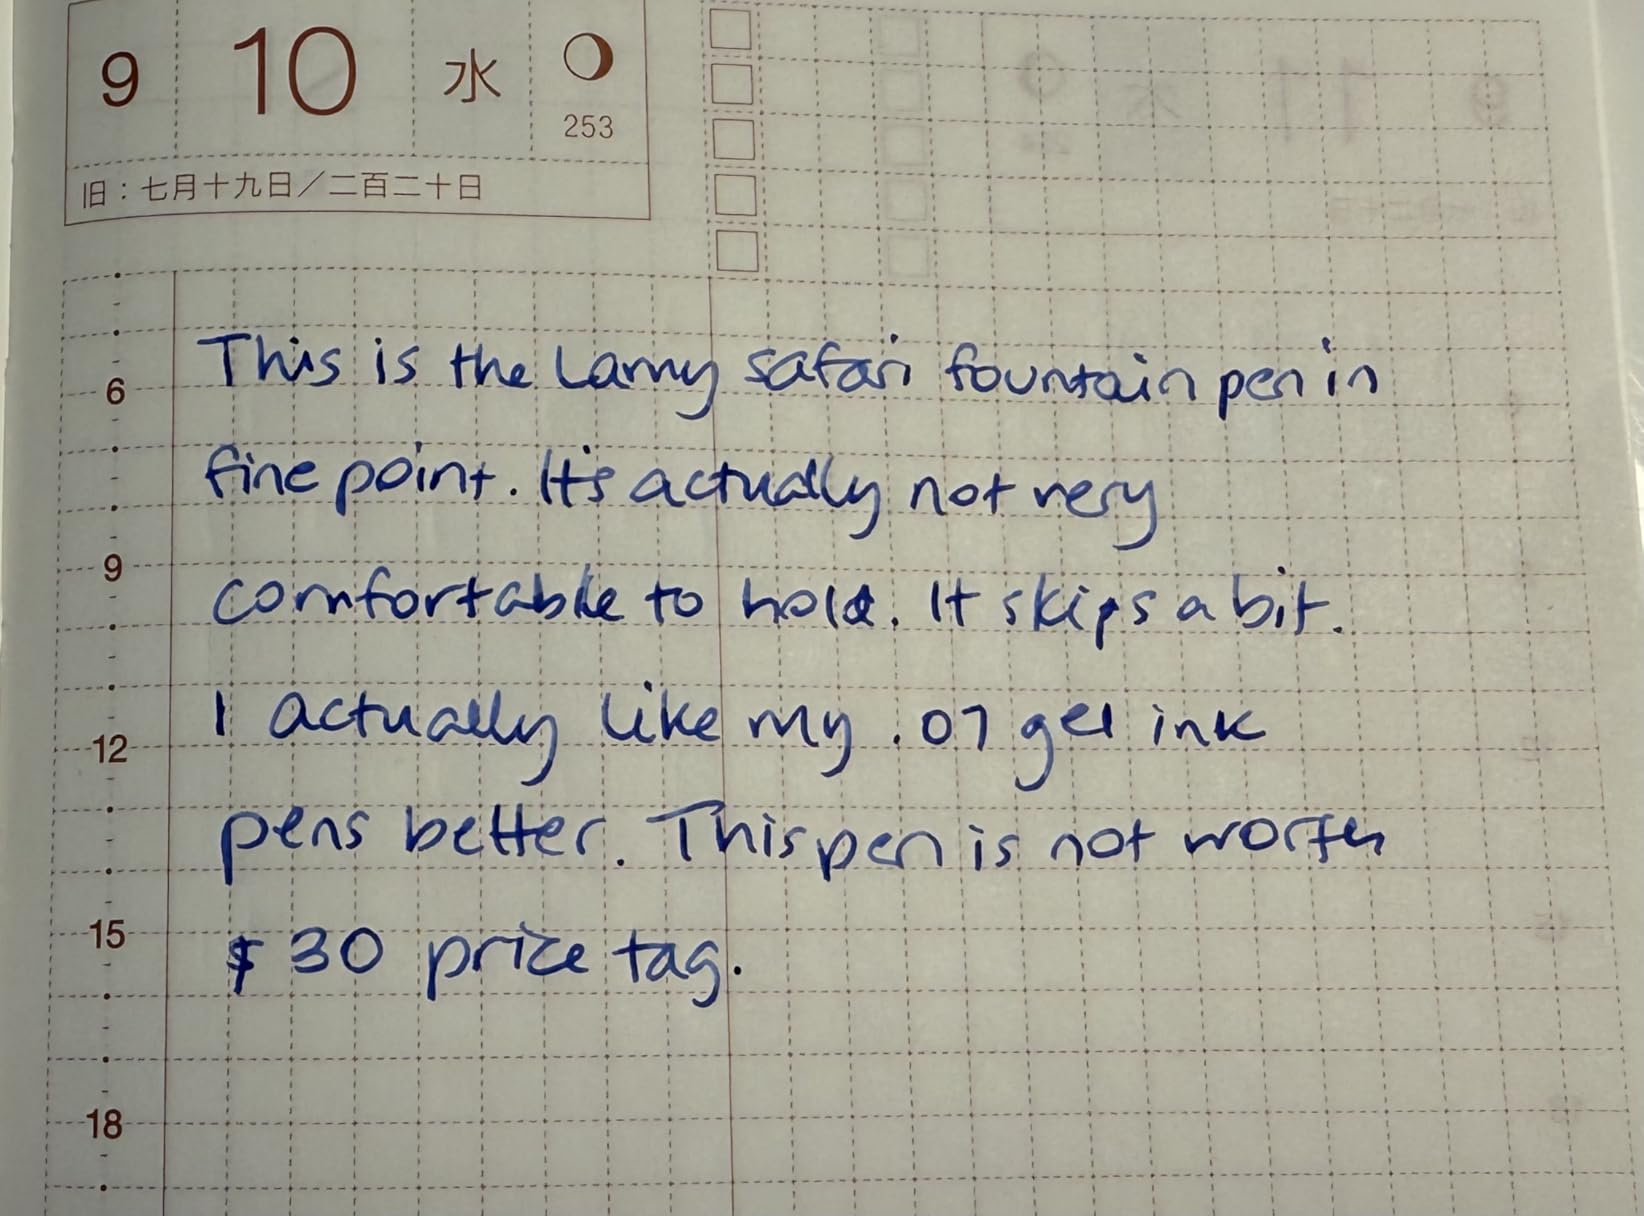 9 10 水
253
旧：七月十九日／二百二十日
This is the Lamy safari fountain pen in
6
fine point. It's actually not very
9
comfortable to hold. It skips a bit.
I actually like my .07 gel ink
12
pens better. This pen is not worth
15
$30 price tag.
18